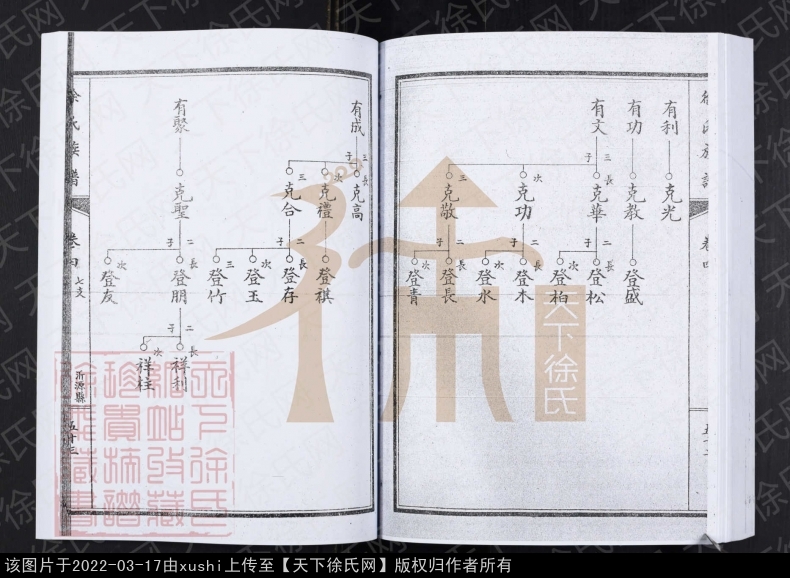 徐氏族譜
卷四
有利
克光
有功
克教
登盛
有文
三子
長 克華
次 克功
三 克敬
二子
長 登松
次 登柏
二子
長 登木
次 登水
二子
長 登長
次 登青
有成
三子
長 克高
次 克禮
三 克合
登祺
三子
長 登存
次 登玉
三 登竹
有聚
克聖
二子
長 登朋
次 登友
二子
長 祥利
次 祥柱
徐氏族譜
卷四
七支
沂源縣
五十三
天下徐氏
天下徐氏网
该图片于2022-03-17由xushi上传至【天下徐氏网】版权归作者所有